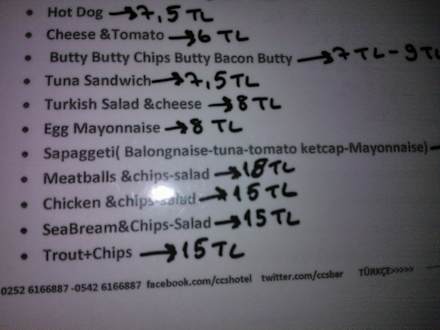 • Hot Dog → 7,5 TL
• Cheese &Tomato → 6 TL
• Butty Butty Chips Butty Bacon Butty → 7 TL - 9 TL
• Tuna Sandwich → 7,5 TL
• Turkish Salad &cheese → 8 TL
• Egg Mayonnaise → 8 TL
• Sapaggeti( Balongnaise-tuna-tomato ketcap-Mayonnaise)
• Meatballs &chips-salad → 18 TL
• Chicken &chips-salad → 15 TL
• SeaBream&Chips-Salad → 15 TL
• Trout+Chips → 15 TL
0252 6166887 -0542 6166887 facebook.com/ccshotel twitter.com/ccsbar TÜRKÇE>>>>>